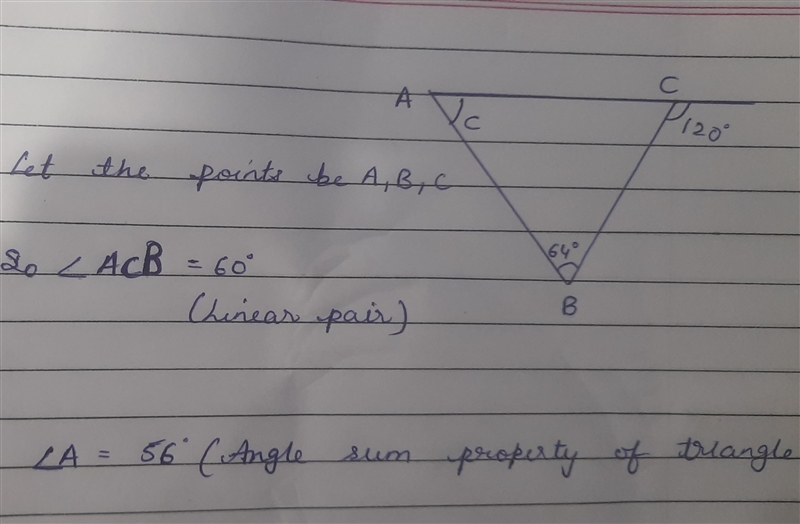 A C
C 120°
Let the points be A, B, C
64°
So ∠ ACB = 60°
(Linear pair)
B
∠A = 56° (Angle sum property of triangle